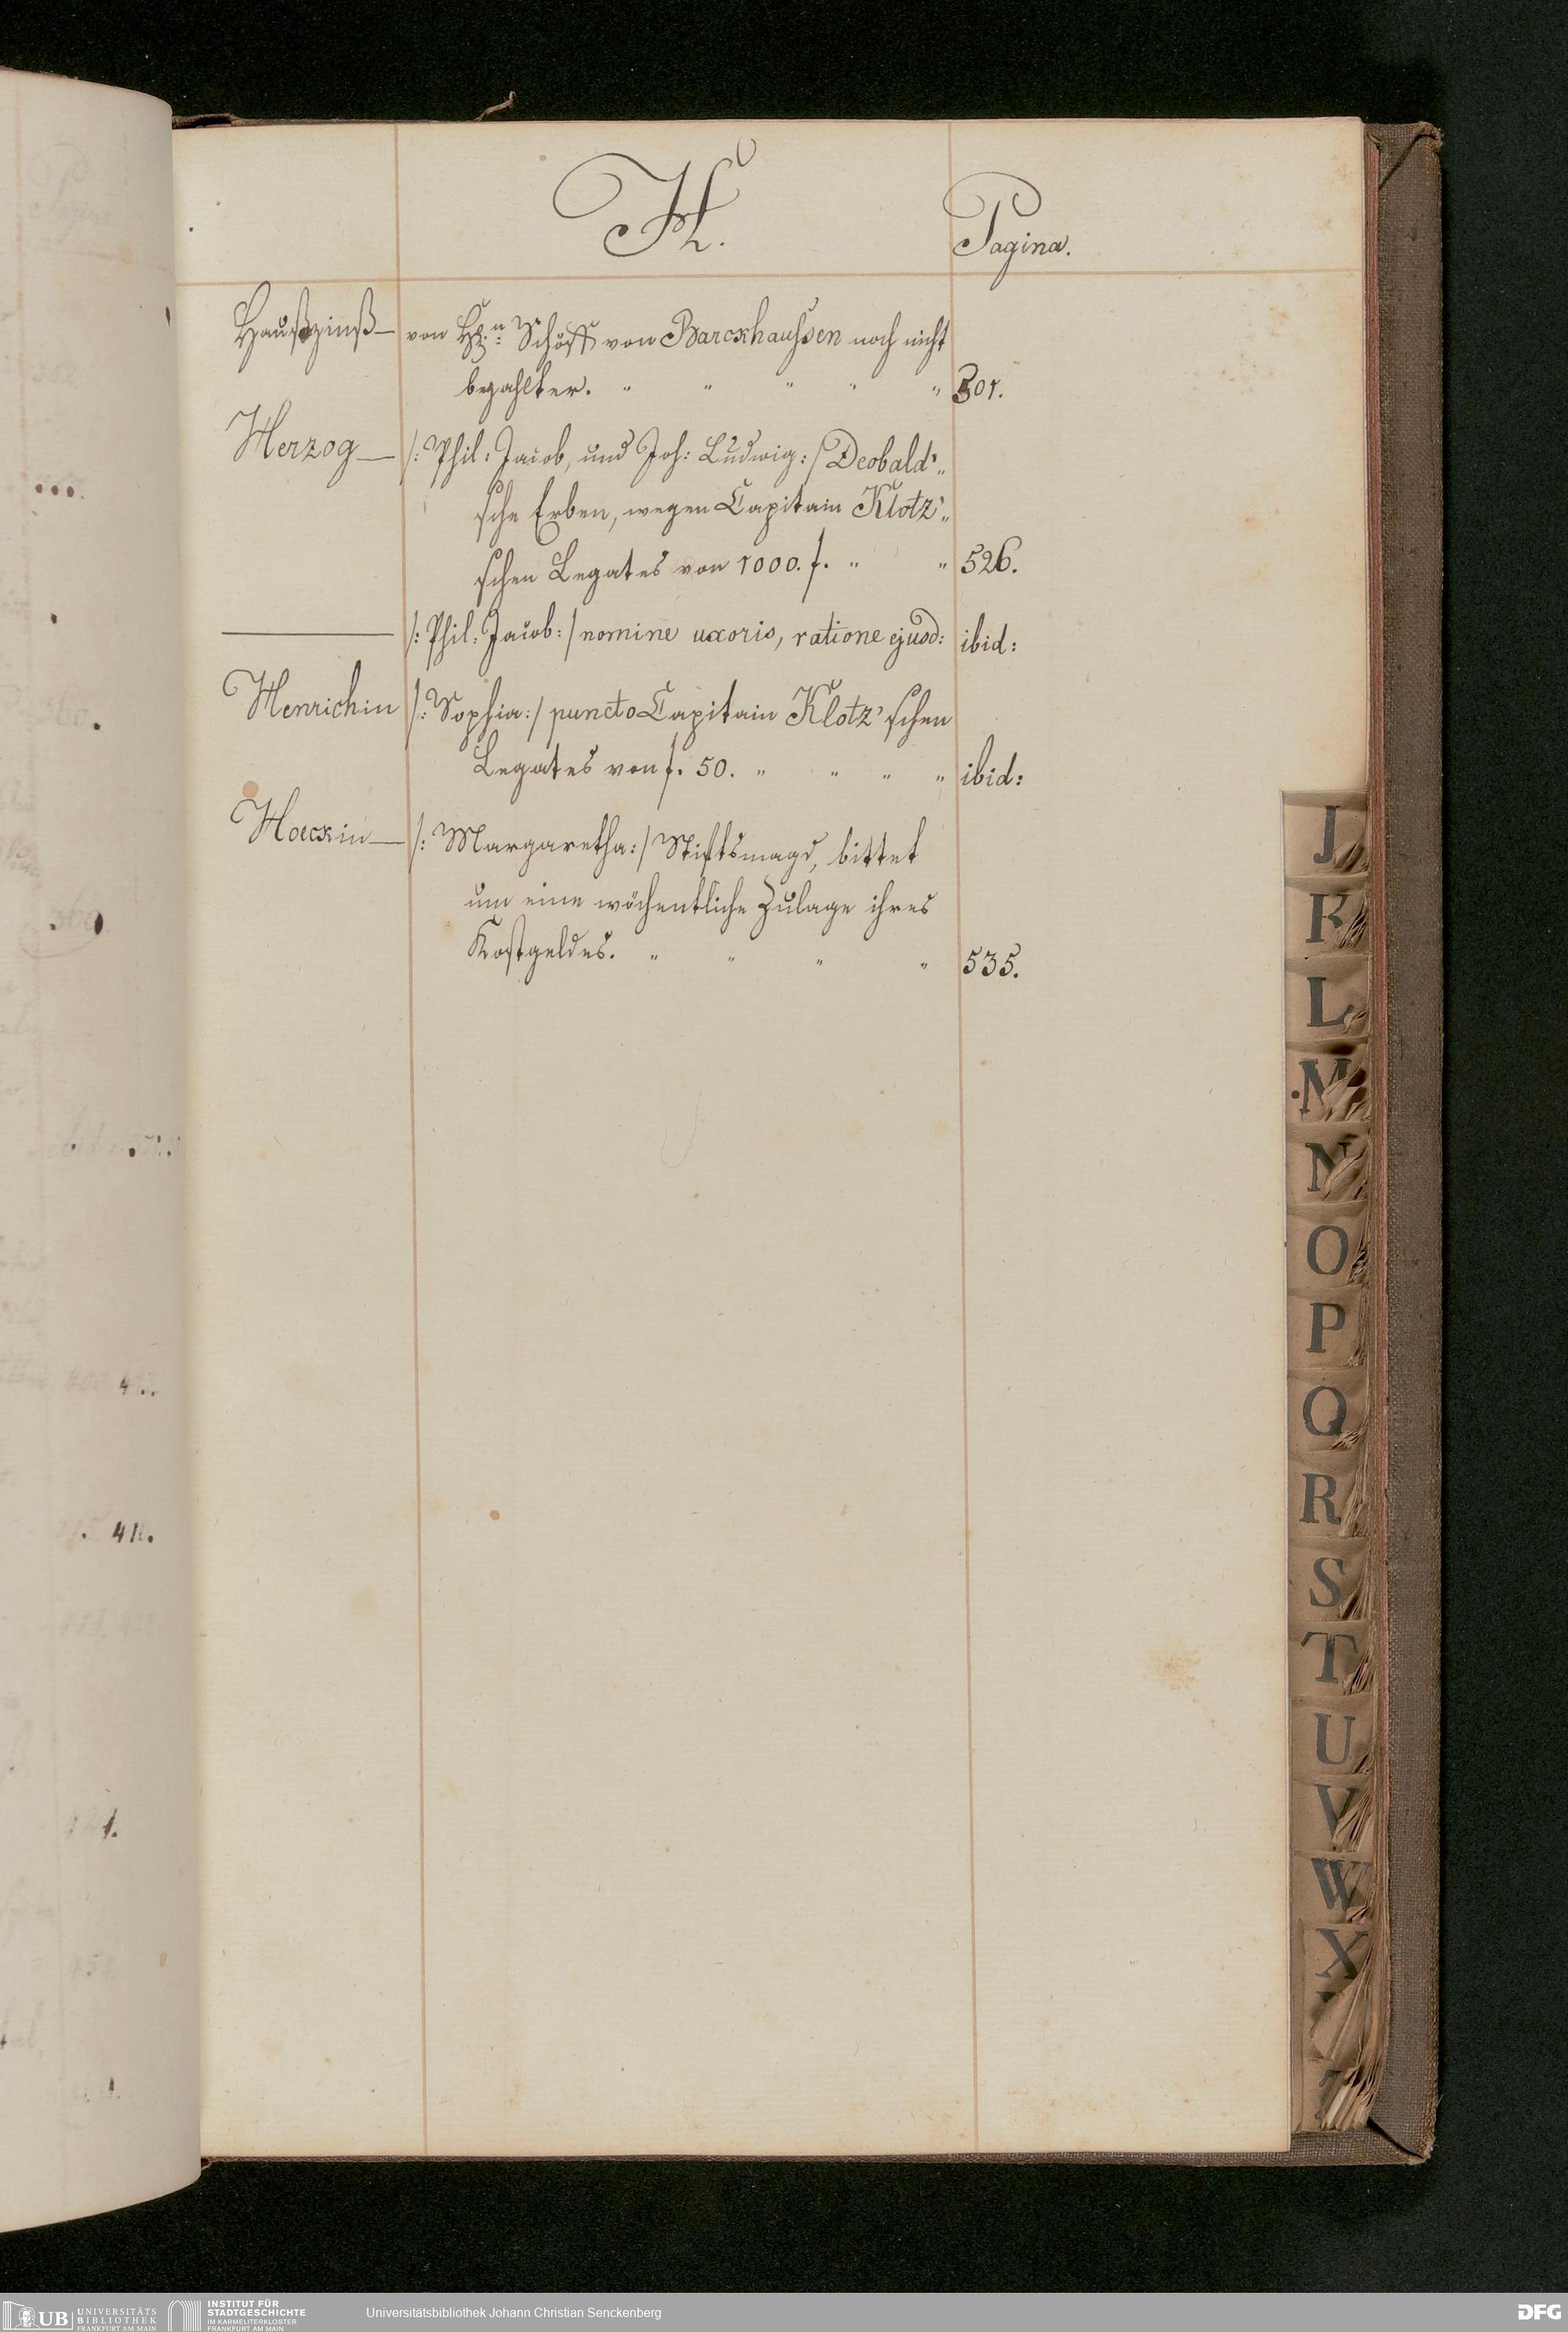 H.
Pagina.
Haußzinß — von H.n Schöff von Barckhaussen noch nicht
bezahlter. " " " " " 501.
Herzog — /: Phil: Jacob, und Joh: Ludwig :/ Deobald'„
sche Erben, wegen Capitain Klotz'„
schen Legates von 1000. f. " " 526.
— /: Phil: Jacob :/ nomine uxoris, ratione ejusd: ibid:
Henrichin /: Sophia :/ puncto Capitain Klotz'schen
Legates von f. 50. " " " " ibid:
Hoeckin — /: Margaretha :/ Stiftsmagd, bittet
um eine wöchentliche Zulage ihres
Kostgeldes. " " " " 535.
J
K
L
M
N
O
P
Q
R
S
T
U
V
W
X
411.
UB UNIVERSITÄTS
BIBLIOTHEK
FRANKFURT AM MAIN
INSTITUT FÜR
STADTGESCHICHTE
IM KARMELITERKLOSTER
FRANKFURT AM MAIN
Universitätsbibliothek Johann Christian Senckenberg
DFG